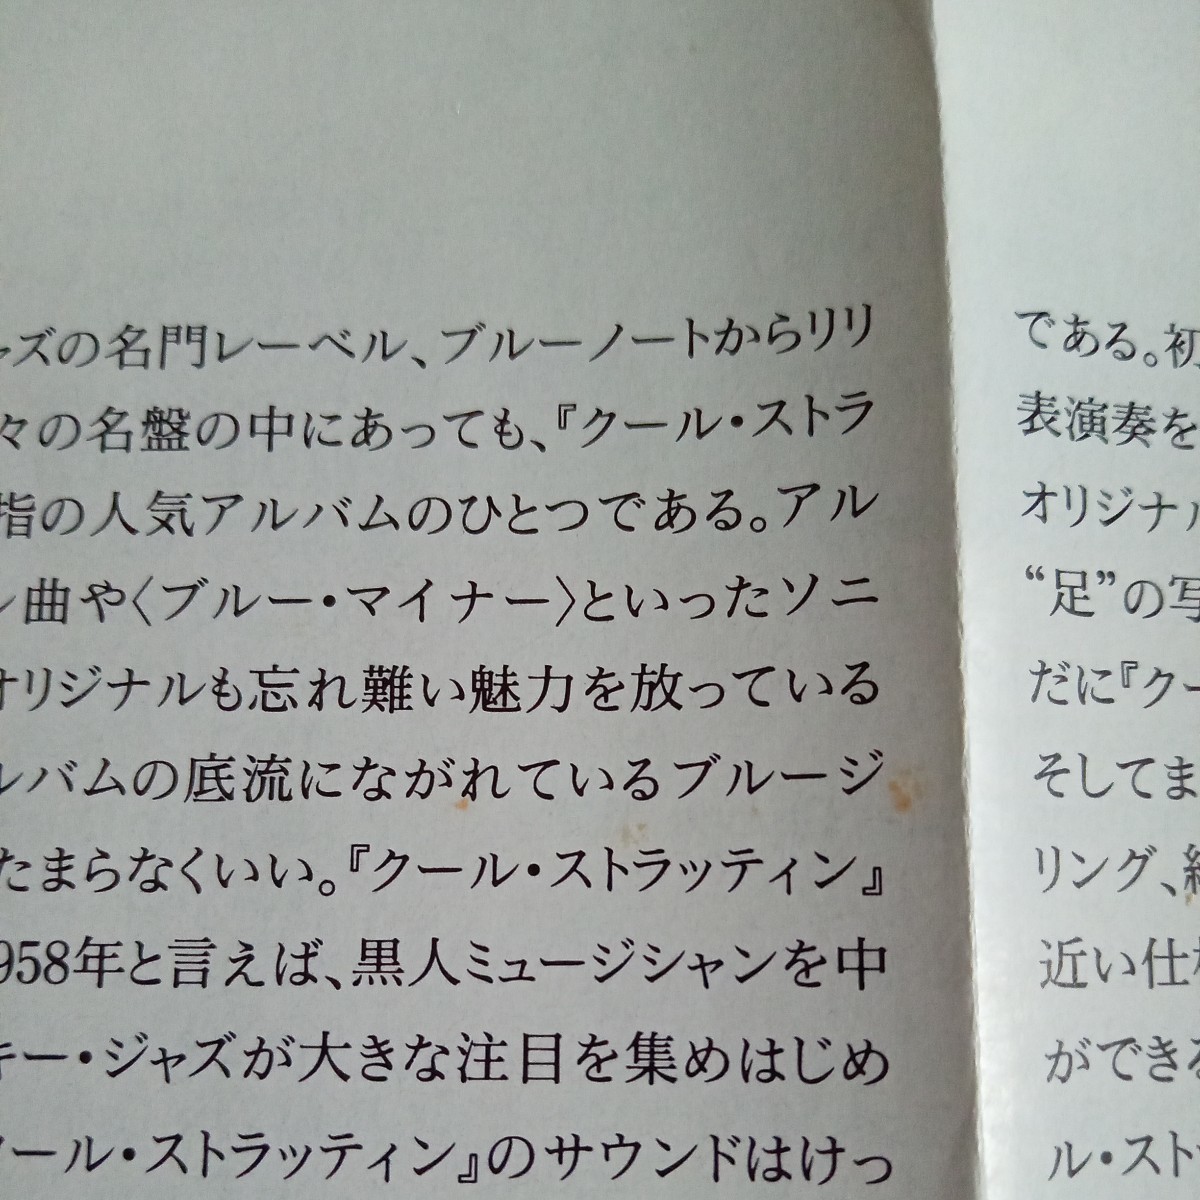 ャズの名門レーベル、ブルーノートからリリ
々の名盤の中にあっても、『クール・ストラ
指の人気アルバムのひとつである。アル
曲や〈ブルー・マイナー〉といったソニ
オリジナルも忘れ難い魅力を放っている
ルバムの底流にながれているブルージ
たまらなくいい。『クール・ストラッティン』
958年と言えば、黒人ミュージシャンを中
キー・ジャズが大きな注目を集めはじめ
クール・ストラッティン』のサウンドはけっ
である。初
表演奏を
オリジナル
“足”の写
だに『クー
そしてま
リング、
近い仕様
ができる
ル・スト